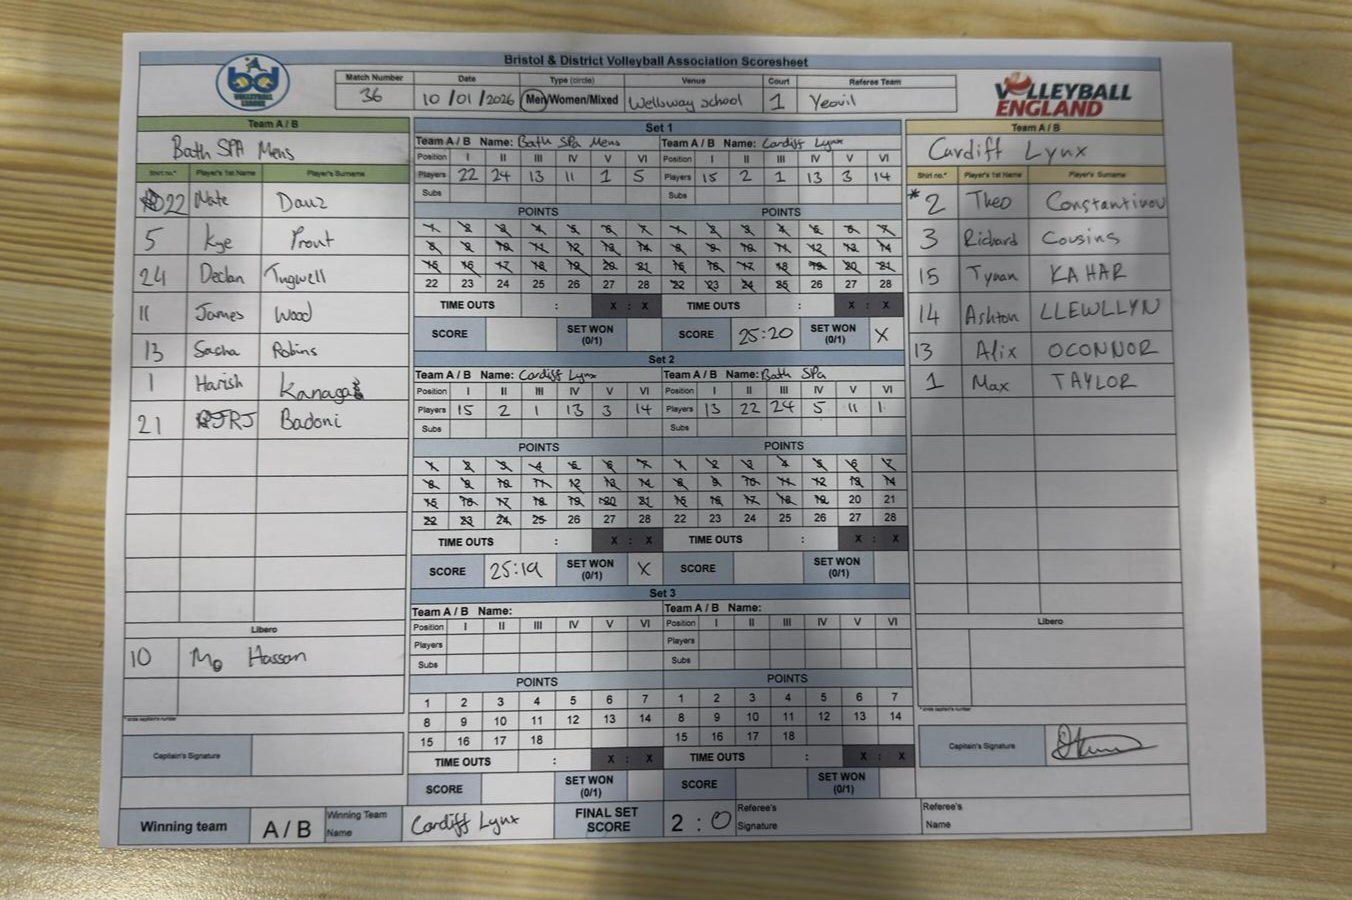 Bristol & District Volleyball Association Scoresheet
bd VOLLEYBALL LEAGUE
Match Number Date Type (circle) Venue Court Referee Team
36 10/01/2026 Men/Women/Mixed Wellsway school 1 Yeovil
VOLLEYBALL ENGLAND
Team A / B
Bath SPA Mens
Shirt no.* Player's 1st Name Player's Surname
22 Nate
5 Kye Prout
24 Declan Tugwell
11 James Wood
13 Sasha Robins
1 Harish
21 RJ Badoni
Libero
10 Mo Hassan
Captain's Signature
Set 1
Team A / B Name: Bath SPa Mens Team A / B Name: Cardiff Lynx
Position I II III IV V VI Position I II III IV V VI
Players 22 24 13 11 1 5 Players 15 2 1 13 3 14
Subs Subs
POINTS POINTS
1 2 3 4 5 6 7 1 2 3 4 5 6 7
8 9 10 11 12 13 14 8 9 10 11 12 13 14
15 16 17 18 19 20 21 15 16 17 18 19 20 21
22 23 24 25 26 27 28 22 23 24 25 26 27 28
TIME OUTS : X : X TIME OUTS : X : X
SCORE SET WON (0/1) SCORE 25:20 SET WON (0/1) X
Set 2
Team A / B Name: Cardiff Lynx Team A / B Name: Bath SPa
Position I II III IV V VI Position I II III IV V VI
Players 15 2 1 13 3 14 Players 13 22 24 5 11 1
Subs Subs
POINTS POINTS
1 2 3 4 5 6 7 1 2 3 4 5 6 7
8 9 10 11 12 13 14 8 9 10 11 12 13 14
15 16 17 18 19 20 21 15 16 17 18 19 20 21
22 23 24 25 26 27 28 22 23 24 25 26 27 28
TIME OUTS : X : X TIME OUTS : X : X
SCORE 25:19 SET WON (0/1) X SCORE SET WON (0/1)
Set 3
Team A / B Name: Team A / B Name:
Position I II III IV V VI Position I II III IV V VI
Players Players
Subs Subs
POINTS POINTS
1 2 3 4 5 6 7 1 2 3 4 5 6 7
8 9 10 11 12 13 14 8 9 10 11 12 13 14
15 16 17 18 15 16 17 18
TIME OUTS : X : X TIME OUTS : X : X
SCORE SET WON (0/1) SCORE SET WON (0/1)
Team A / B
Cardiff Lynx
Shirt no.* Player's 1st Name Player's Surname
*2 Theo Constantinou
3 Richard Cousins
15 Tynan KAHAR
14 Ashton LLEWLLYN
13 Alix OCONNOR
1 Max TAYLOR
Libero
Captain's Signature
Winning team A / B Winning Team Name Cardiff Lynx FINAL SET SCORE 2 : 0 Referee's Signature Referee's Name